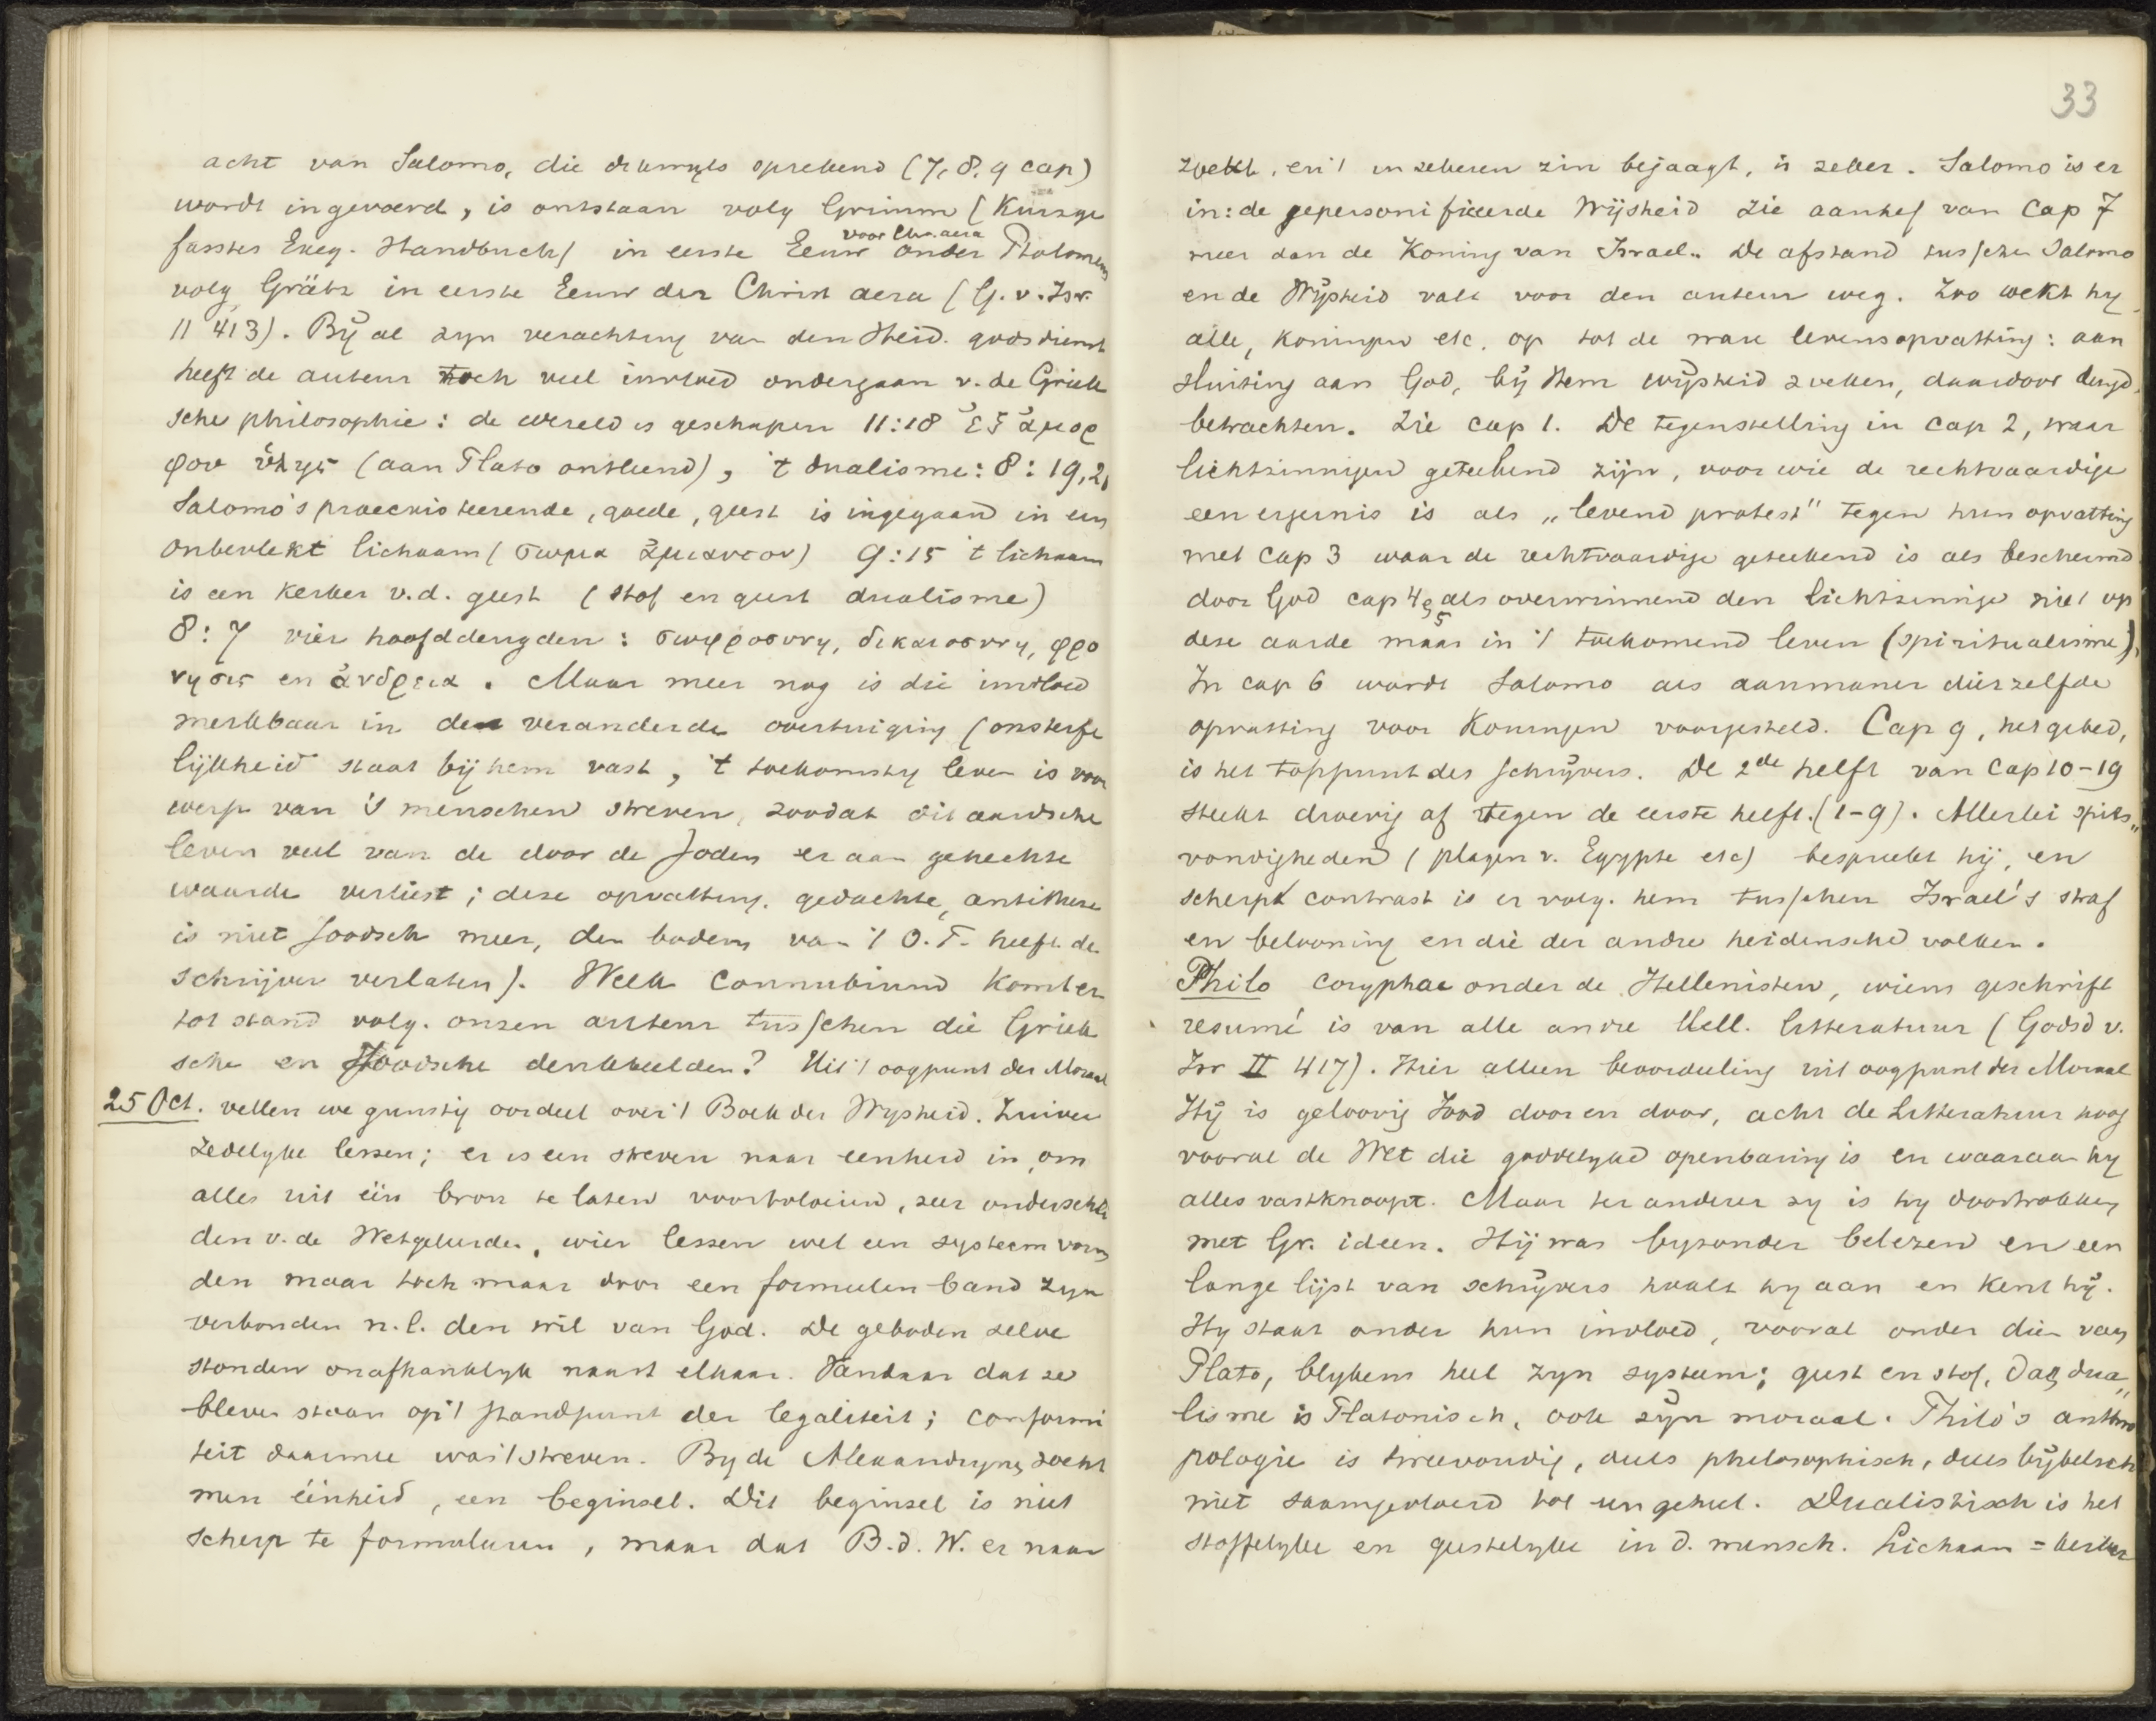 acht van Salomo, die dikwyls sprekend (7, 8, 9 cap)
wordt ingevoerd, is ontstaan volg Grimm (Kurzge
fasstes Exeg. Handbuch) in eerste Eeuw voor Chr. aera onder Ptolomeus
volg Grätz in eerste Eeuw der Christ aera (G. v. Isr.
II 413). Bij al zyn verachting van den Heid. godsdienst
heeft de auteur toch veel invloed ondergaan v. de Griek
sche philosophie: de wereld is geschapen 11:18 ἐξ ἀμορ
φου ὑλης (aan Plato ontleend), 't dualisme: 8:19, 20
Salomo's praeexisteerende, goede, geest is ingegaan in een
onbevlekt lichaam (σωμα ἀμιαντον) 9:15 't lichaam
is een kerker v.d. geest (stof en geest dualisme)
8:7 vier hoofddeugden: σωφροσυνη, δικαιοσυνη, φρο
νησις en ἀνδρεια. Maar meer nog is die invloed
merkbaar in de veranderde overtuiging (onsterfe
lijkheid staat bij hem vast, 't toekomstig leven is voor
werp van 's menschen streven, zoodat dit aardsche
leven veel van de door de Joden er aan gehechte
waarde verliest; deze opvatting, gedachte, antithese
is niet Joodsch meer, den bodem van 't O.T. heeft de
schrijver verlaten). Welk connubium komt er
tot stand volg. onzen auteur tusschen die Griek
sche en Joodsche denkbeelden? Uit 't oogpunt der Moraal
25 Oct. vellen we gunstig oordeel over 't Boek der Wysheid. Zuiver
zedelyke lessen; er is een streven naar eenheid in, om
alles uit één bron te laten voortvloeien, zeer onderschei
den v. de Wetgeleerden, wier lessen wel een systeem vorm
den maar toch maar door een formeelen band zyn
verbonden n.l. den wil van God. De geboden zelve
stonden onafhankelyk naast elkaar. Vandaar dat ze
bleven staan op 't standpunt der legaliteit; conformi
teit daarmee was 't streven. By de Alexandryners zoekt
men éénheid, een beginsel. Dit beginsel is niet
scherp te formuleeren, maar dat B.d.W. er naar
33
zoekt, en 't in zekeren zin bejaagt, is zeker. Salomo is er
in: de gepersonificeerde Wijsheid zie aanhef van Cap 7
meer dan de Koning van Israel. De afstand tusschen Salomo
en de Wijsheid valt voor den auteur weg. Zoo wekt hy
alle, koningen etc. op tot de ware levensopvatting: aan
sluiting aan God, bij Hem wijsheid zoeken, daardoor deugd
betrachten. Zie cap 1. De tegenstelling in cap 2, waar
lichtzinnigen geteekend zijn, voor wie de rechtvaardige
een ergernis is als „levend protest" tegen hun opvatting
met cap 3 waar de rechtvaardige geteekend is als beschermd
door God cap 4, 5 als overwinnend den lichtzinnige niet op
deze aarde maar in 't toekomend leven (spiritualisme).
In cap 6 wordt Salomo als aanmaner dierzelfde
opvatting voor Koningen voorgesteld. Cap 9, het gebed,
is het toppunt des schrijvers. De 2de helft van Cap 10-19
steekt droevig af tegen de eerste helft. (1-9). Allerlei spits„
vondigheden (plagen v. Egypte etc) bespreekt hij, en
scherpt contrast is er volg. hem tusschen Israel's straf
en belooning en die der andre heidensche volken.
Philo coryphae onder de Hellenisten, wiens geschrift
resumé is van alle andre Hell. litteratuur (Godsd v.
Isr II 417). Hier alleen beoordeeling uit oogpunt der Moraal
Hij is geloovig Jood door en door, acht de Litteratuur hoog
vooral de Wet die goddelyke openbaring is en waaraan hy
alles vastknoopt. Maar ter anderer zy is hy doortrokken
met Gr. ideen. Hij was byzonder belezen en een
lange lijst van schrijvers haalt hy aan en kent hij.
Hy staat onder hun invloed, vooral onder dien van
Plato, blykens heel zyn systeem; geest en stof, dat dua„
lisme is Platonisch, ook zijn moraal. Philo's anthro
pologie is tweevoudig, deels philosophisch, deels bijbelsch
niet saamgevloeid tot een geheel. Dualistisch is het
stoffelyke en geestelyke in d. mensch. Lichaam = kerker